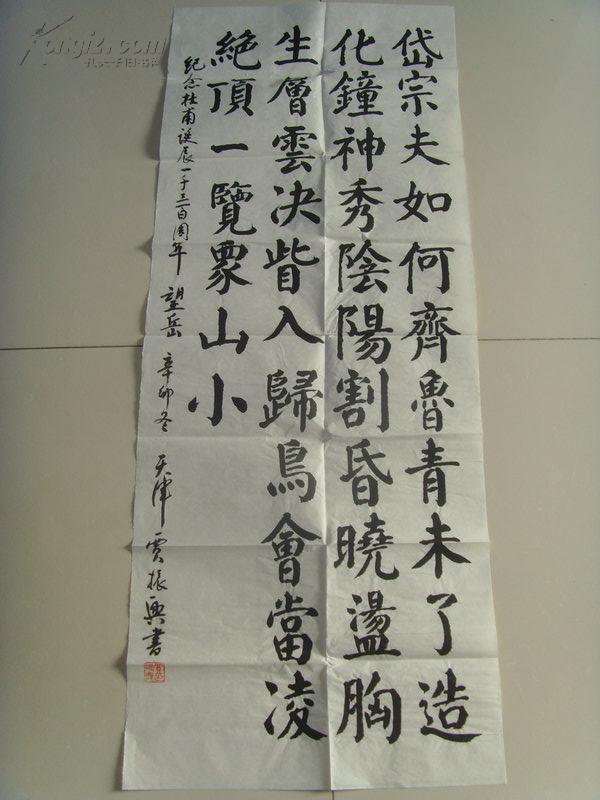 岱宗夫如何齊魯青未了造
化鐘神秀陰陽割昏曉盪胸
生層雲决眥入歸鳥會當凌
絶頂一覽衆山小
纪念杜甫诞辰一千三百周年 望岳 辛卯冬 天津 贾振興書
Kongfz.com
孔夫子旧书网